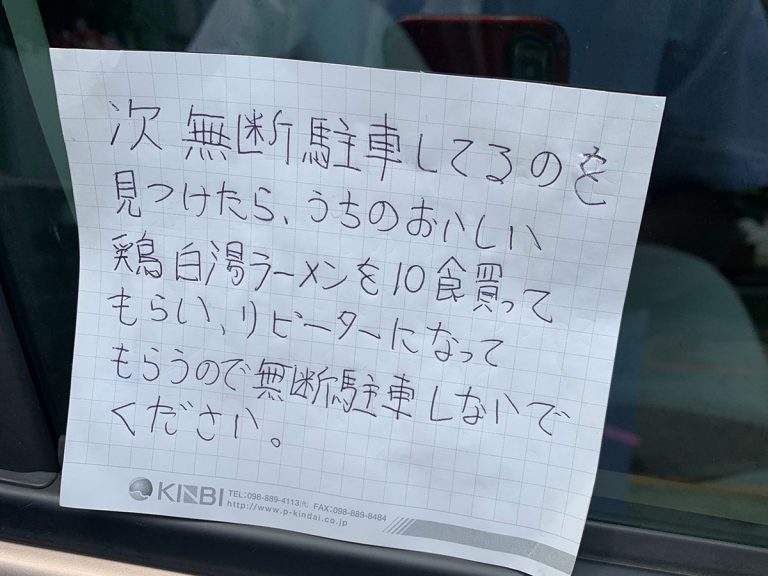 次 無断駐車してるのを
見つけたら、うちのおいしい
鶏白湯ラーメンを10食買って
もらい、リピーターになって
もらうので無断駐車しないで
ください。
KINBI TEL:098-889-4113(代) FAX:098-889-8484
http://www.p-kindai.co.jp